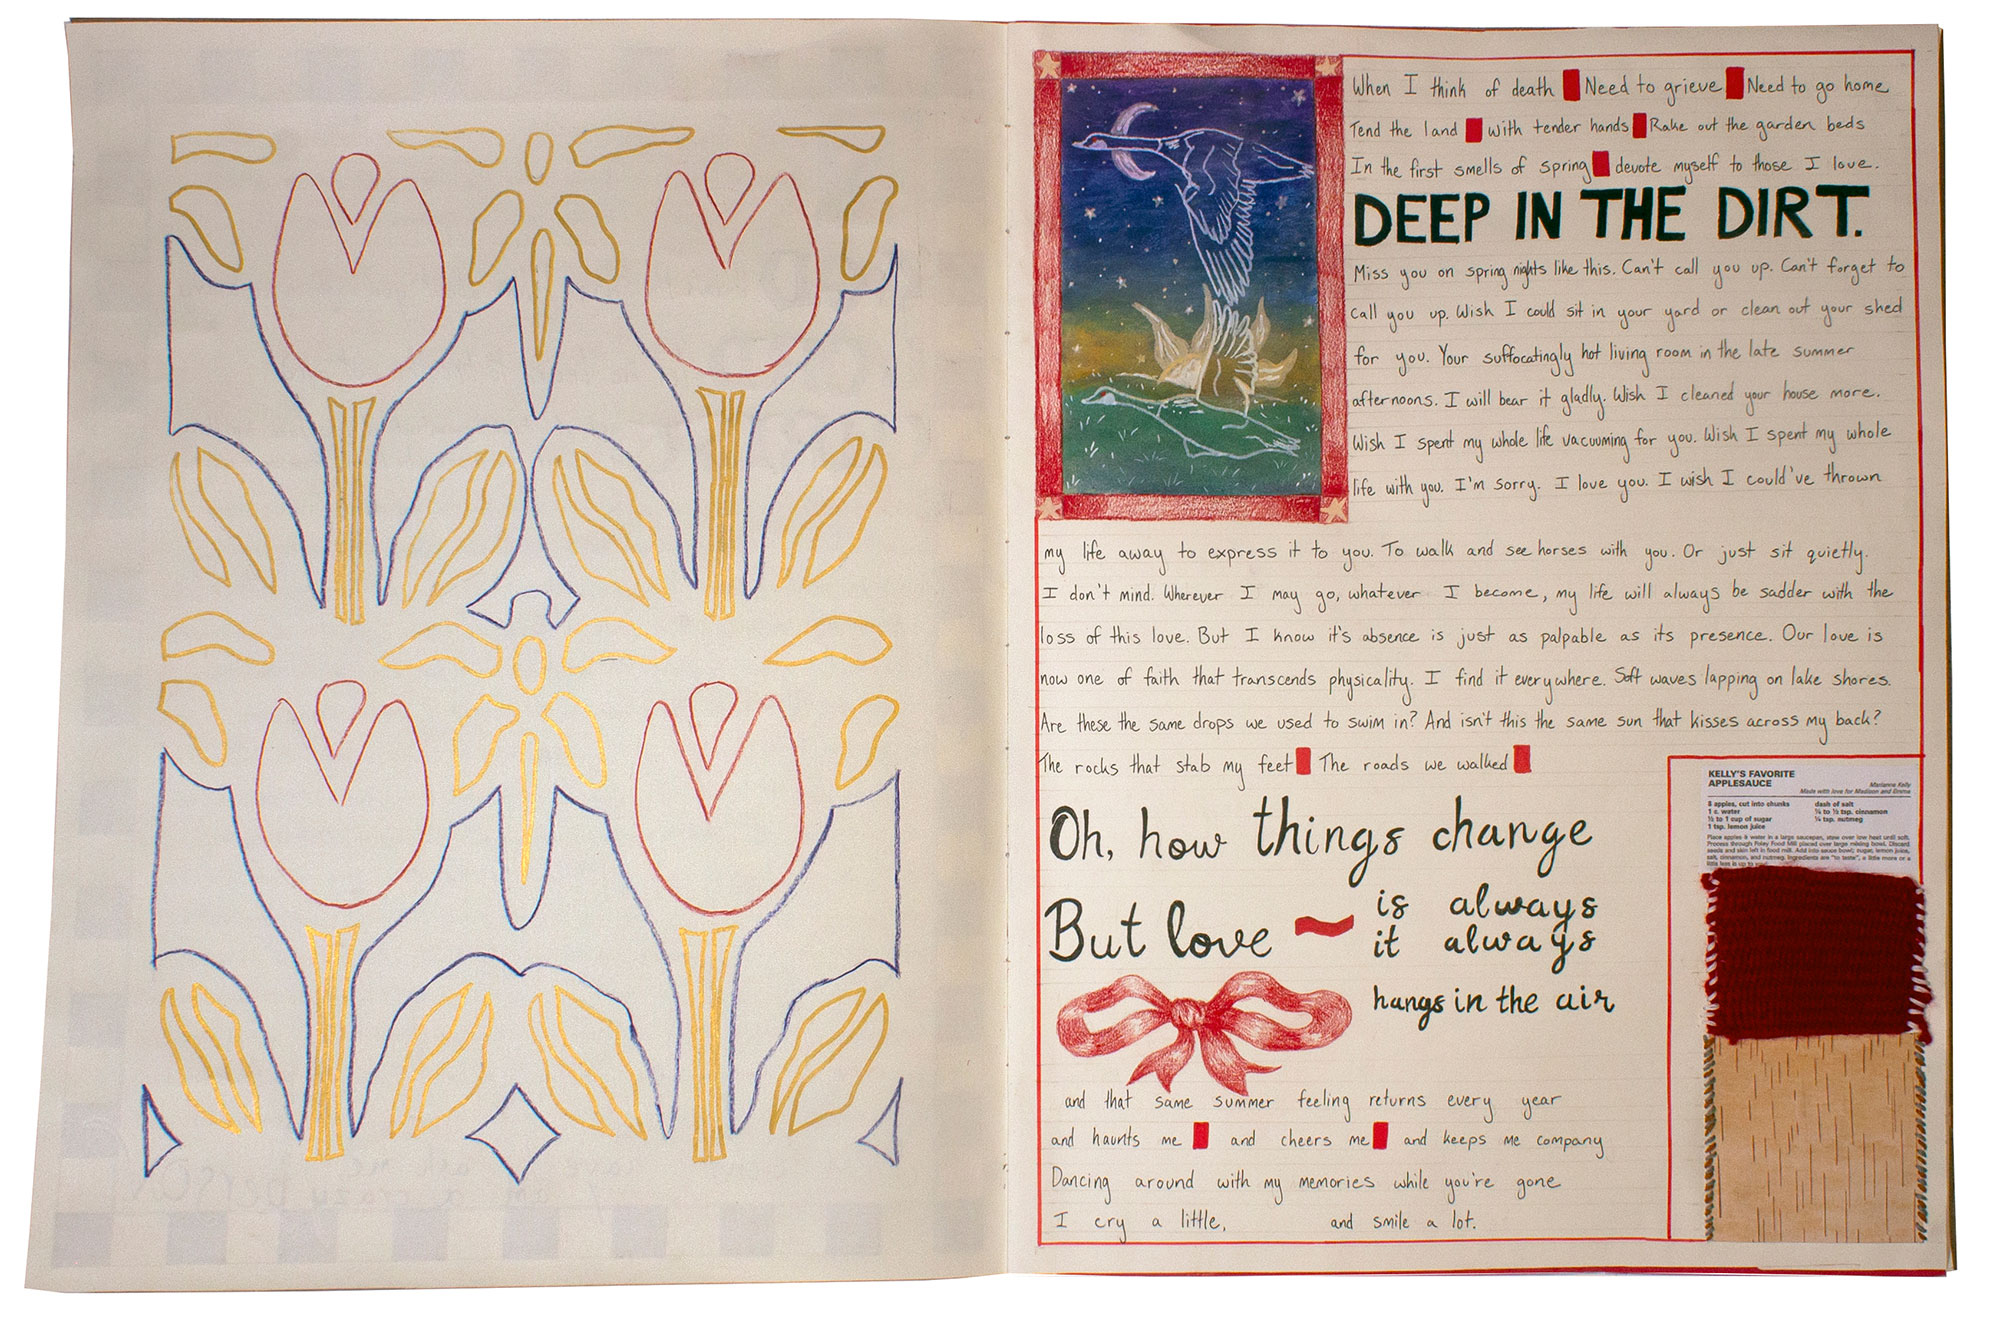 When I think of death Need to grieve Need to go home
Tend the land with tender hands Rake out the garden beds
In the first smells of spring devote myself to those I love.
DEEP IN THE DIRT.
Miss you on spring nights like this. Can't call you up. Can't forget to
call you up. Wish I could sit in your yard or clean out your shed
for you. Your suffocatingly hot living room in the late summer
afternoons. I will bear it gladly. Wish I cleaned your house more.
Wish I spent my whole life vacuuming for you. Wish I spent my whole
life with you. I'm sorry. I love you. I wish I could've thrown
my life away to express it to you. To walk and see horses with you. Or just sit quietly.
I don't mind. Wherever I may go, whatever I become, my life will always be sadder with the
loss of this love. But I know it's absence is just as palpable as its presence. Our love is
now one of faith that transcends physicality. I find it everywhere. Soft waves lapping on lake shores.
Are these the same drops we used to swim in? And isn't this the same sun that kisses across my back?
The rocks that stab my feet The roads we walked
Oh, how things change
But love is always
it always
hangs in the air
and that same summer feeling returns every year
and haunts me and cheers me and keeps me company
Dancing around with my memories while you're gone
I cry a little, and smile a lot.
KELLY'S FAVORITE
APPLESAUCE
Marianna Kelly
Made with love for Madison and Emma
8 apples, cut into chunks
1 c. water
½ to 1 cup of sugar
1 tsp. lemon juice
dash of salt
¼ to ½ tsp. cinnamon
¼ tsp. nutmeg
Place apples & water in a large saucepan, stew over low heat until soft.
Process through Foley Food Mill placed over large mixing bowl. Discard
seeds and skin left in food mill. Add into sauce bowl; sugar, lemon juice,
salt, cinnamon, and nutmeg. Ingredients are "to taste", a little more or a
little less is up to